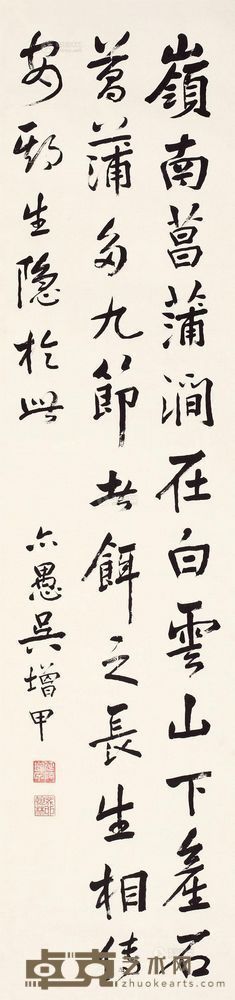 嶺南菖蒲澗在白雲山下產石
菖蒲多九節者餌之長生相傳
安期生隱於此
亦愚吳增甲
卓克艺术网
zhuokearts.com